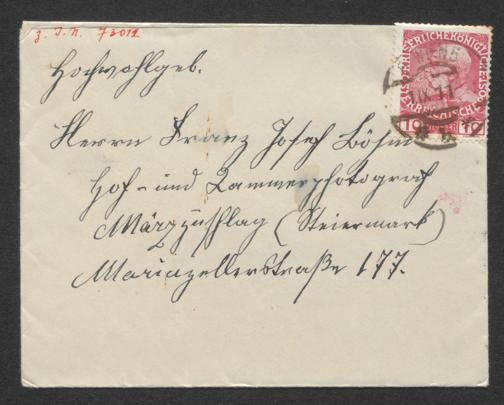 z. I. N. 73012
Hochwohlgeb.
Herrn Franz Josef Böhm
Hof- und Kammerphotograf
Mürzzuschlag (Steiermark)
Mariazellerstraße 177.
KAISERLICHE KÖNIGLICHE
10 10